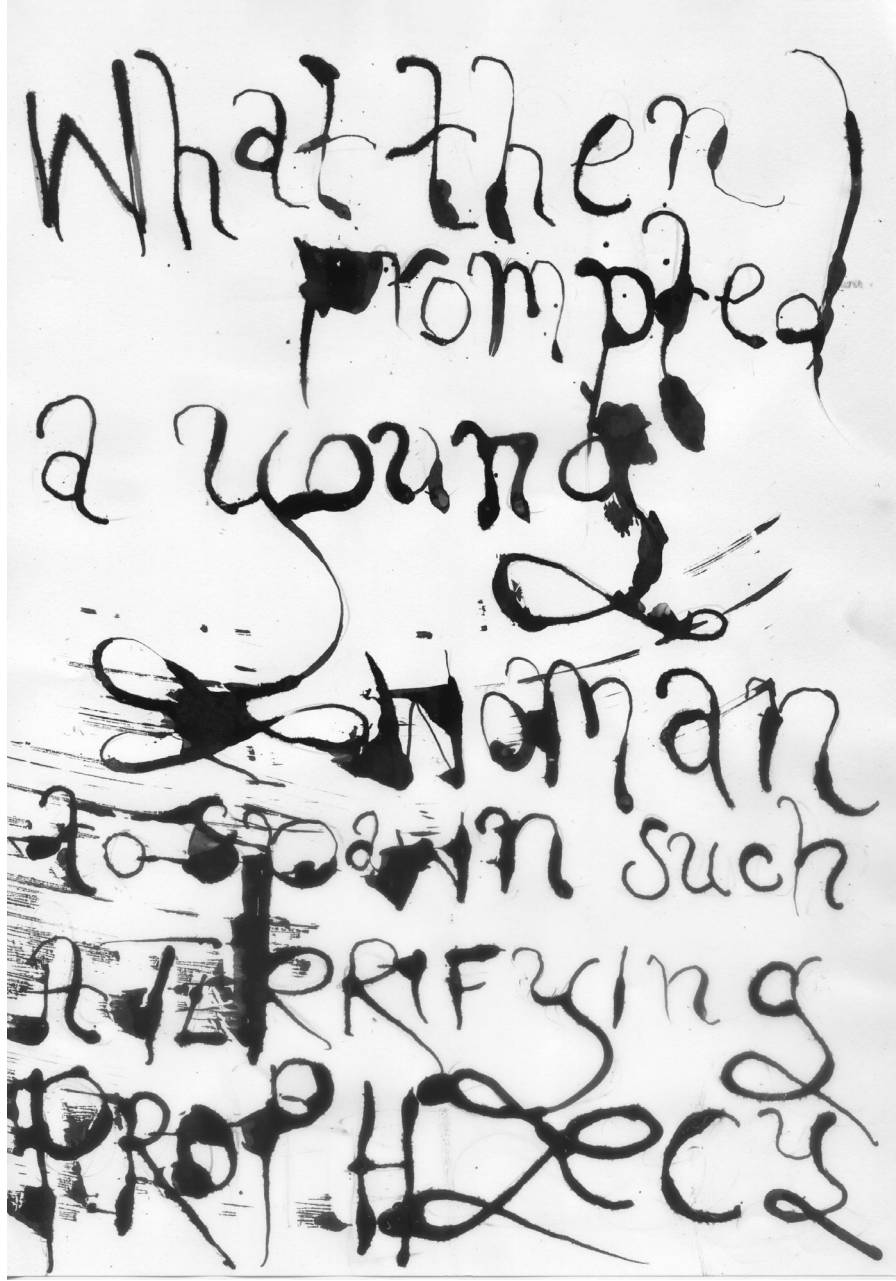 What then
prompted
a young
woman
to spawn such
A TERRIFying
PROPHECY